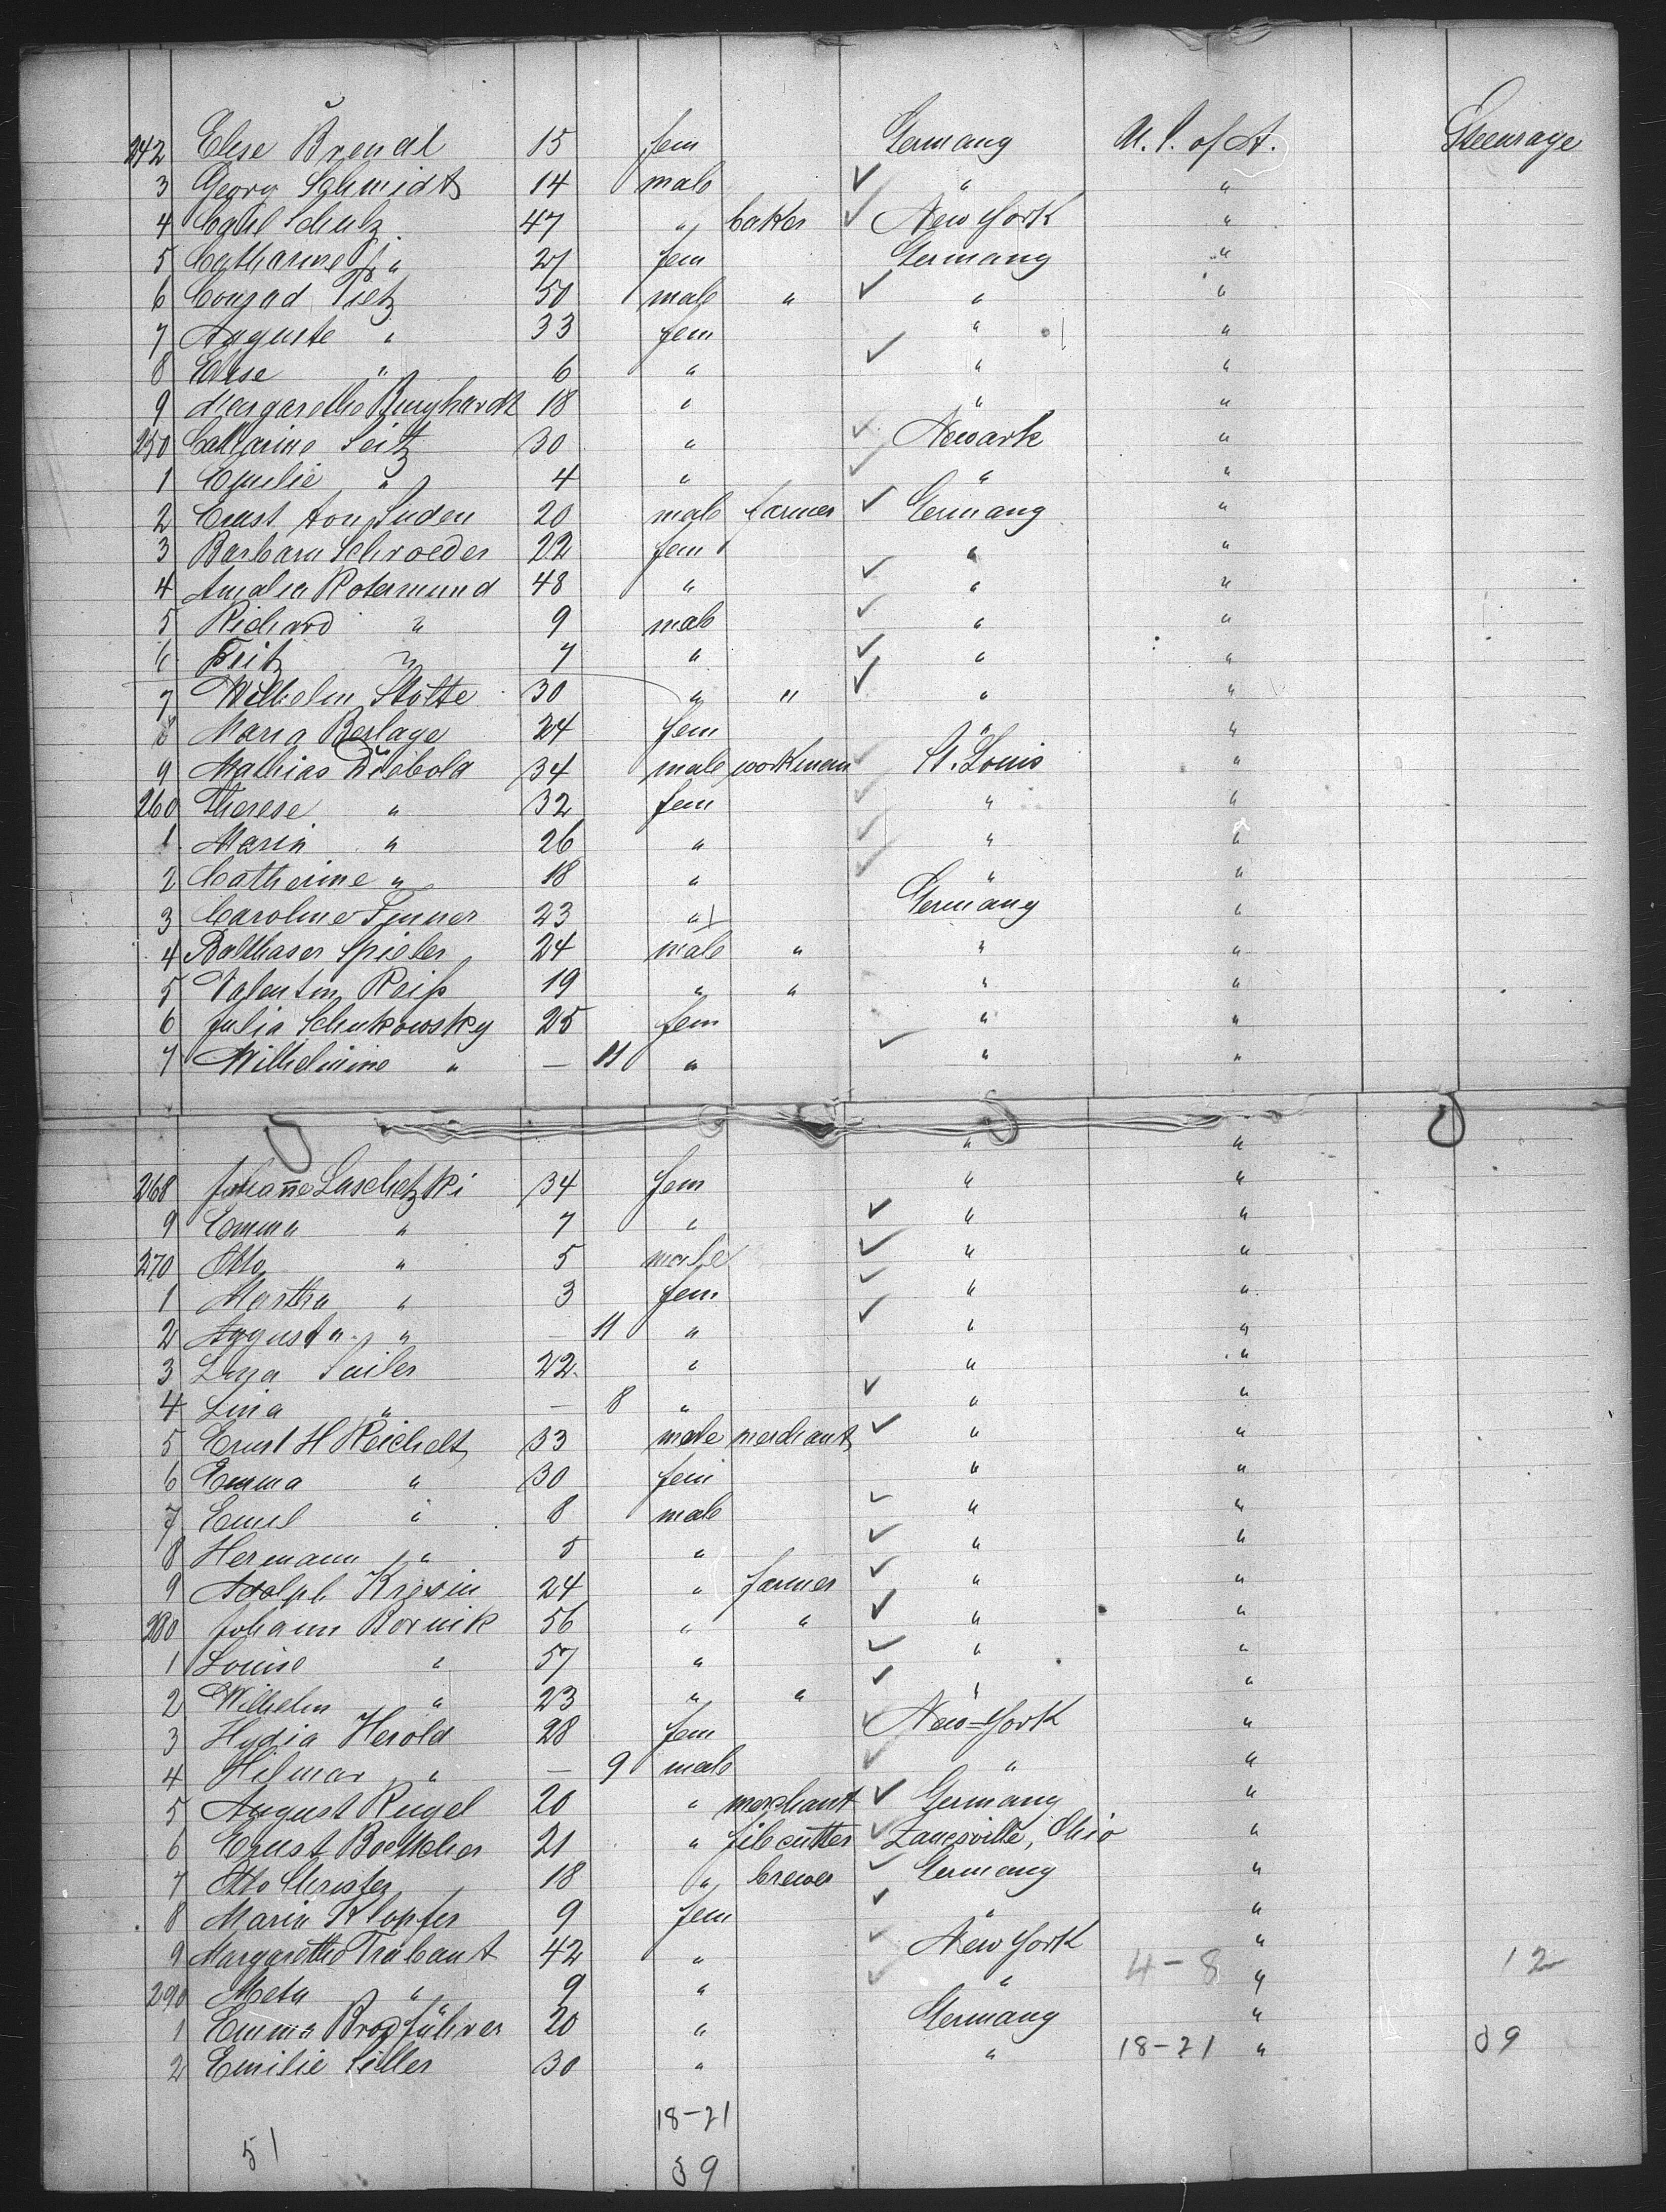 242 Elise Brendl 15 fem Germany U. S. of A. Steerage
3 Georg Schmidt 14 male " "
4 Carl Schulz 47 " baker New York "
5 Catharine " 27 fem Germany "
6 Conrad Tietz 50 male " " "
7 Auguste " 33 fem " "
8 Elise " 6 " " "
9 Margarethe Burghardt 18 " " "
250 Catharine Seitz 30 " Newark "
1 Emilie " 4 " " "
2 Ernst von Suden 20 male farmer Germany "
3 Barbara Schroeder 22 fem " "
4 Amalia Rotermund 48 " " "
5 Richard " 9 male " "
6 Fritz " 7 " " "
7 Wilhelm Stolte 30 " " " "
8 Maria Berlage 24 fem " "
9 Mathias Diebold 34 male workman St. Louis "
260 Therese " 32 fem " "
1 Maria " 26 " " "
2 Catherine " 18 " " "
3 Caroline 23 " Germany "
4 Balthaser Spieler 24 male " " "
5 Valentin Reiß 19 " " " "
6 Julia Schukowsky 25 fem " "
7 Wilhelmine " — 11 " " "
" "
268 Johanne Laschetzki 34 fem " "
9 Emma " 7 " " "
270 Otto " 5 male " "
1 Martha " 3 fem " "
2 Augusta " — 11 " " "
3 Sailer 22 " " "
4 Lina " — 8 " " "
5 Ernst H Reichelt 33 male merchant " "
6 Emma " 30 fem " "
7 Emil " 8 male " "
8 Hermann " 5 " " "
9 Adolph Kresin 24 " farmer " "
280 Johann Bornik 56 " " " "
1 Louise " 57 " " "
2 Wilhelm " 23 " " " "
3 Hydia Herold 28 fem New-York "
4 Hilmar " — 9 male " "
5 August Rugel 20 " merchant Germany "
6 Ernst Boettcher 21 " filecutter Zanesville, Ohio "
7 Otto 18 " brewer Germany "
8 Maria Klopfer 9 fem " "
9 Margarethe Trabant 42 " New York "
290 Meta " 9 " " 4-8 " 12
1 Emma Brodführer 20 " Germany "
2 Emilie Siller 30 " " 18-21 " 39
18-21
51 39